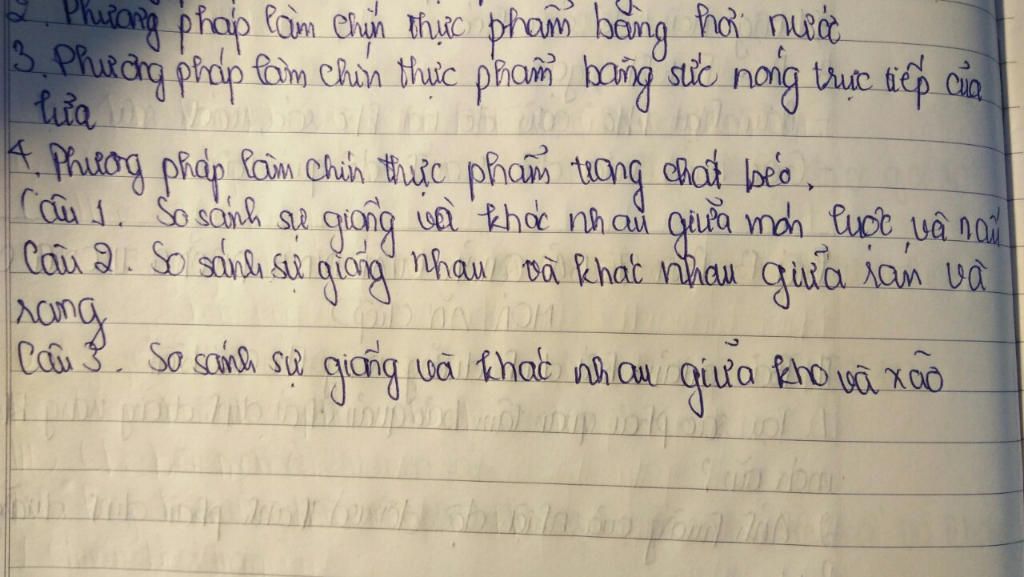 2. Phương pháp làm chín thực phẩm bằng hơi nước
3. Phương pháp làm chín thực phẩm bằng sức nóng trực tiếp của
lửa
4. Phương pháp làm chín thực phẩm trong chất béo.
Câu 1. So sánh sự giống và khác nhau giữa món luộc và nấu
Câu 2. So sánh sự giống nhau và khác nhau giữa rán và
rang
Câu 3. So sánh sự giống và khác nhau giữa kho và xào